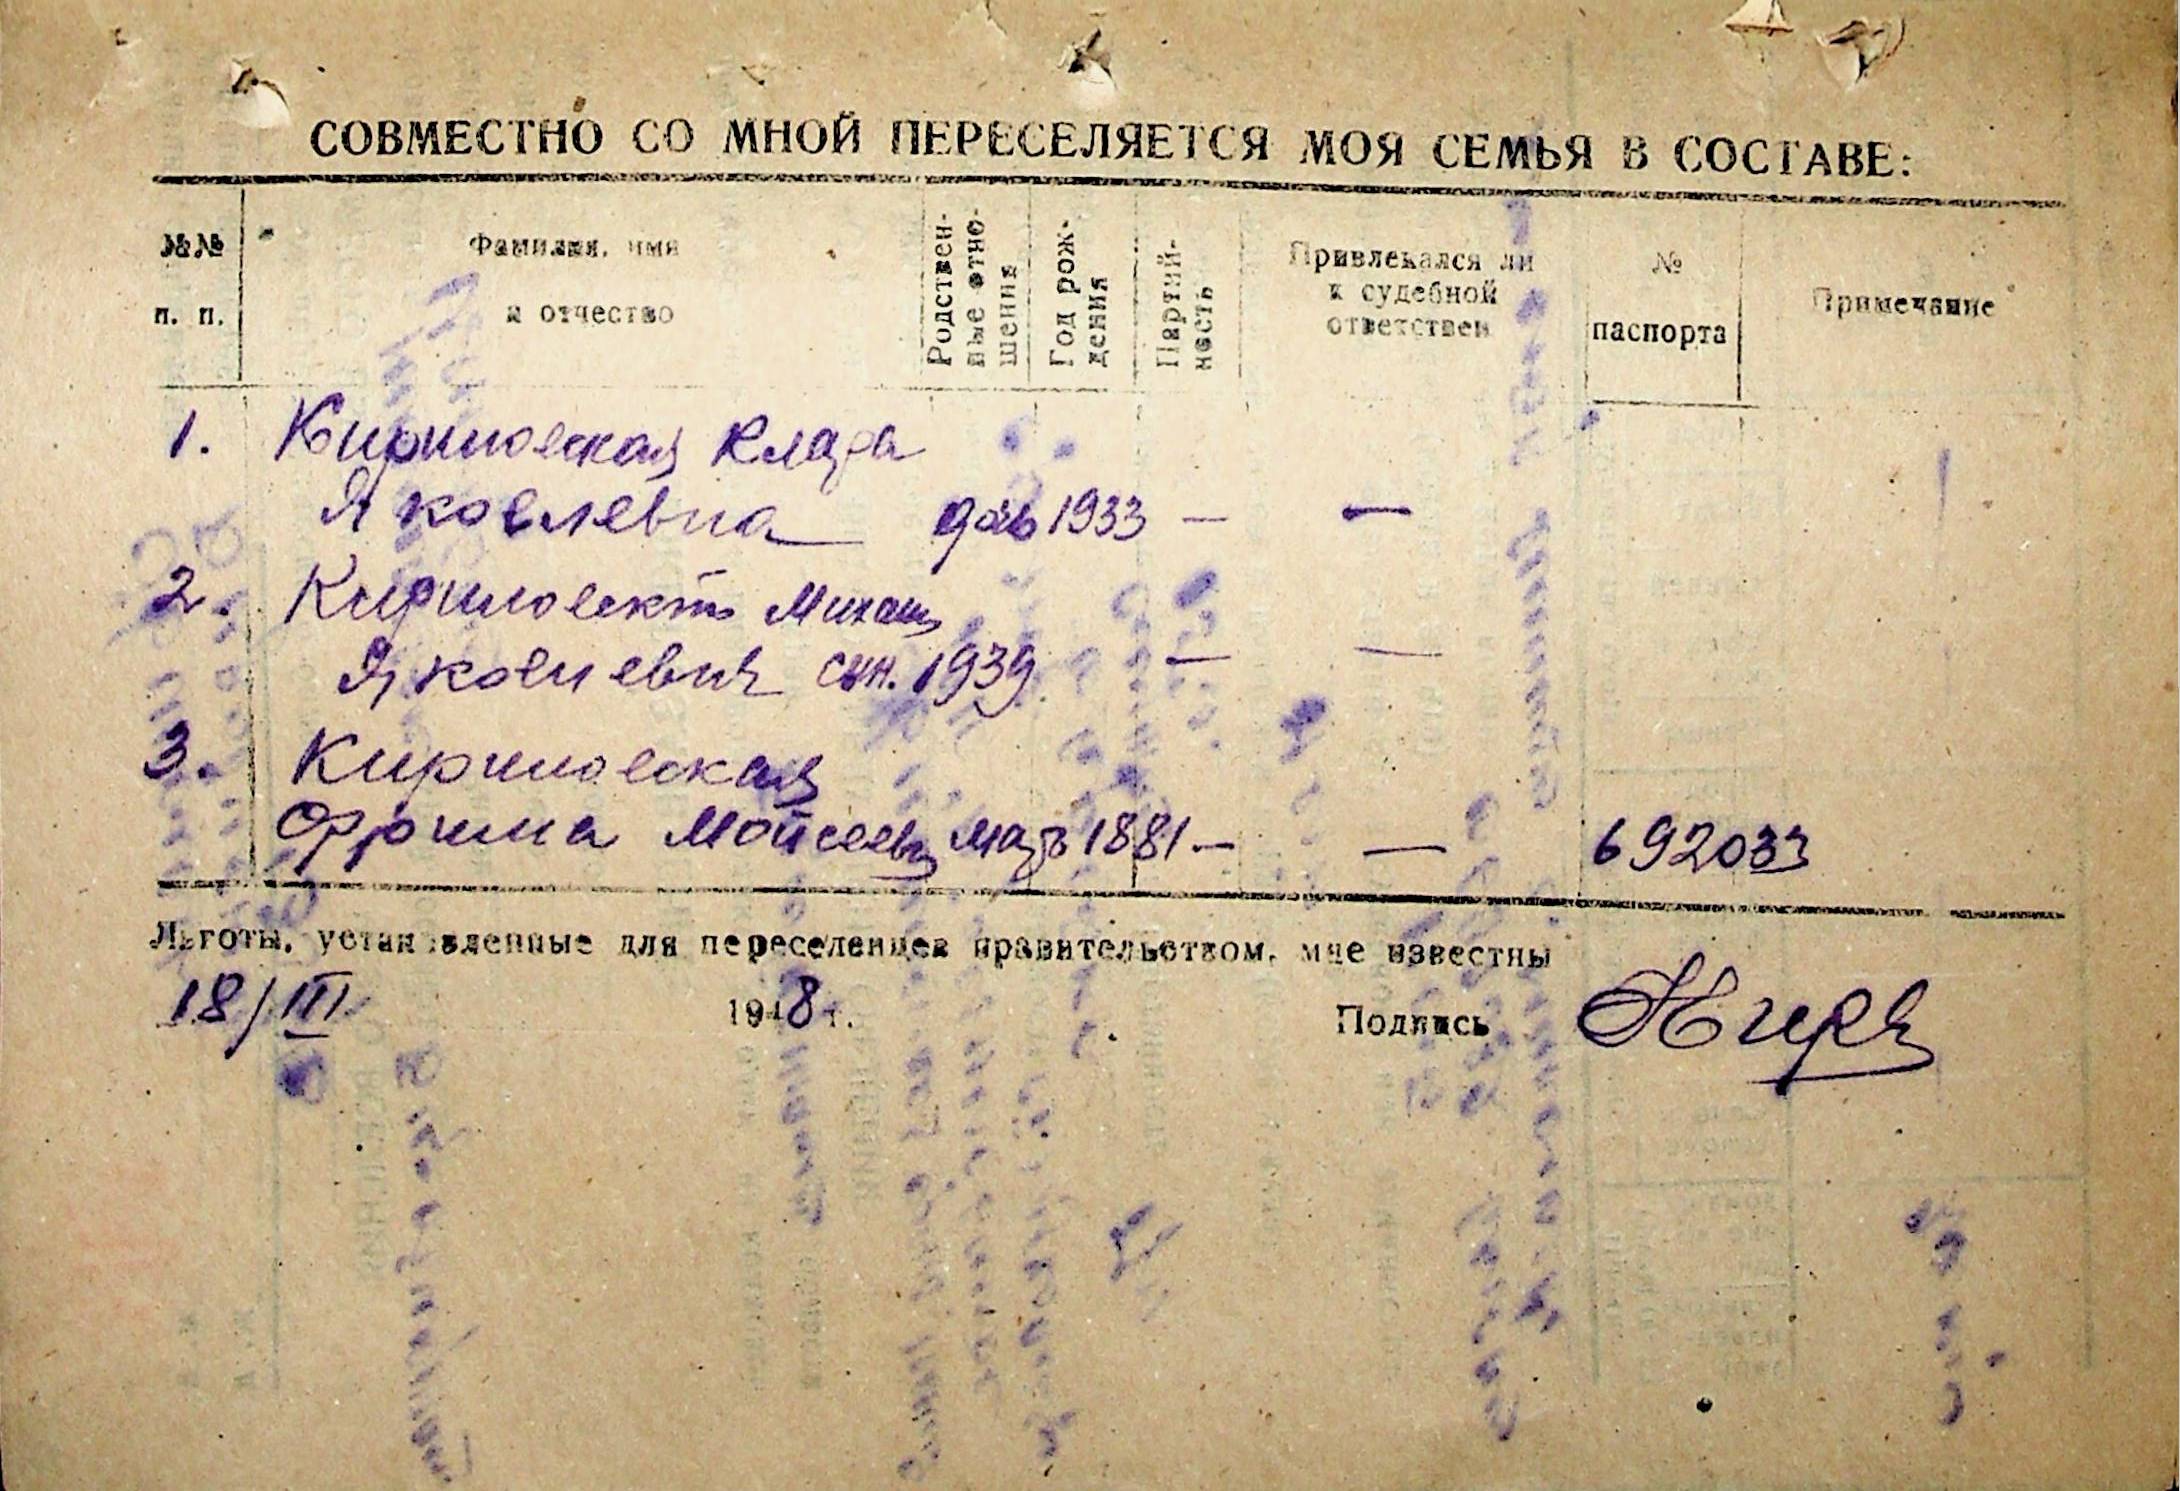 СОВМЕСТНО СО МНОЙ ПЕРЕСЕЛЯЕТСЯ МОЯ СЕМЬЯ В СОСТАВЕ:
№№ п. п.
Фамилия, имя и отчество
Родствен-ные отно-шения
Год рож-дения
Партий-ность
Привлекался ли к судебной ответствен
№ паспорта
Примечание
1. Кириловская Клара
Яковлевна дочь 1933 — —
2. Кириловский Михаил
Яковлевич сын. 1939 — —
3. Кириловская
Фрима Мойсеевн мать 1881 — — 692033
Льготы, установленные для переселенцев правительством, мне известны
18/III 1948 г. Подпись